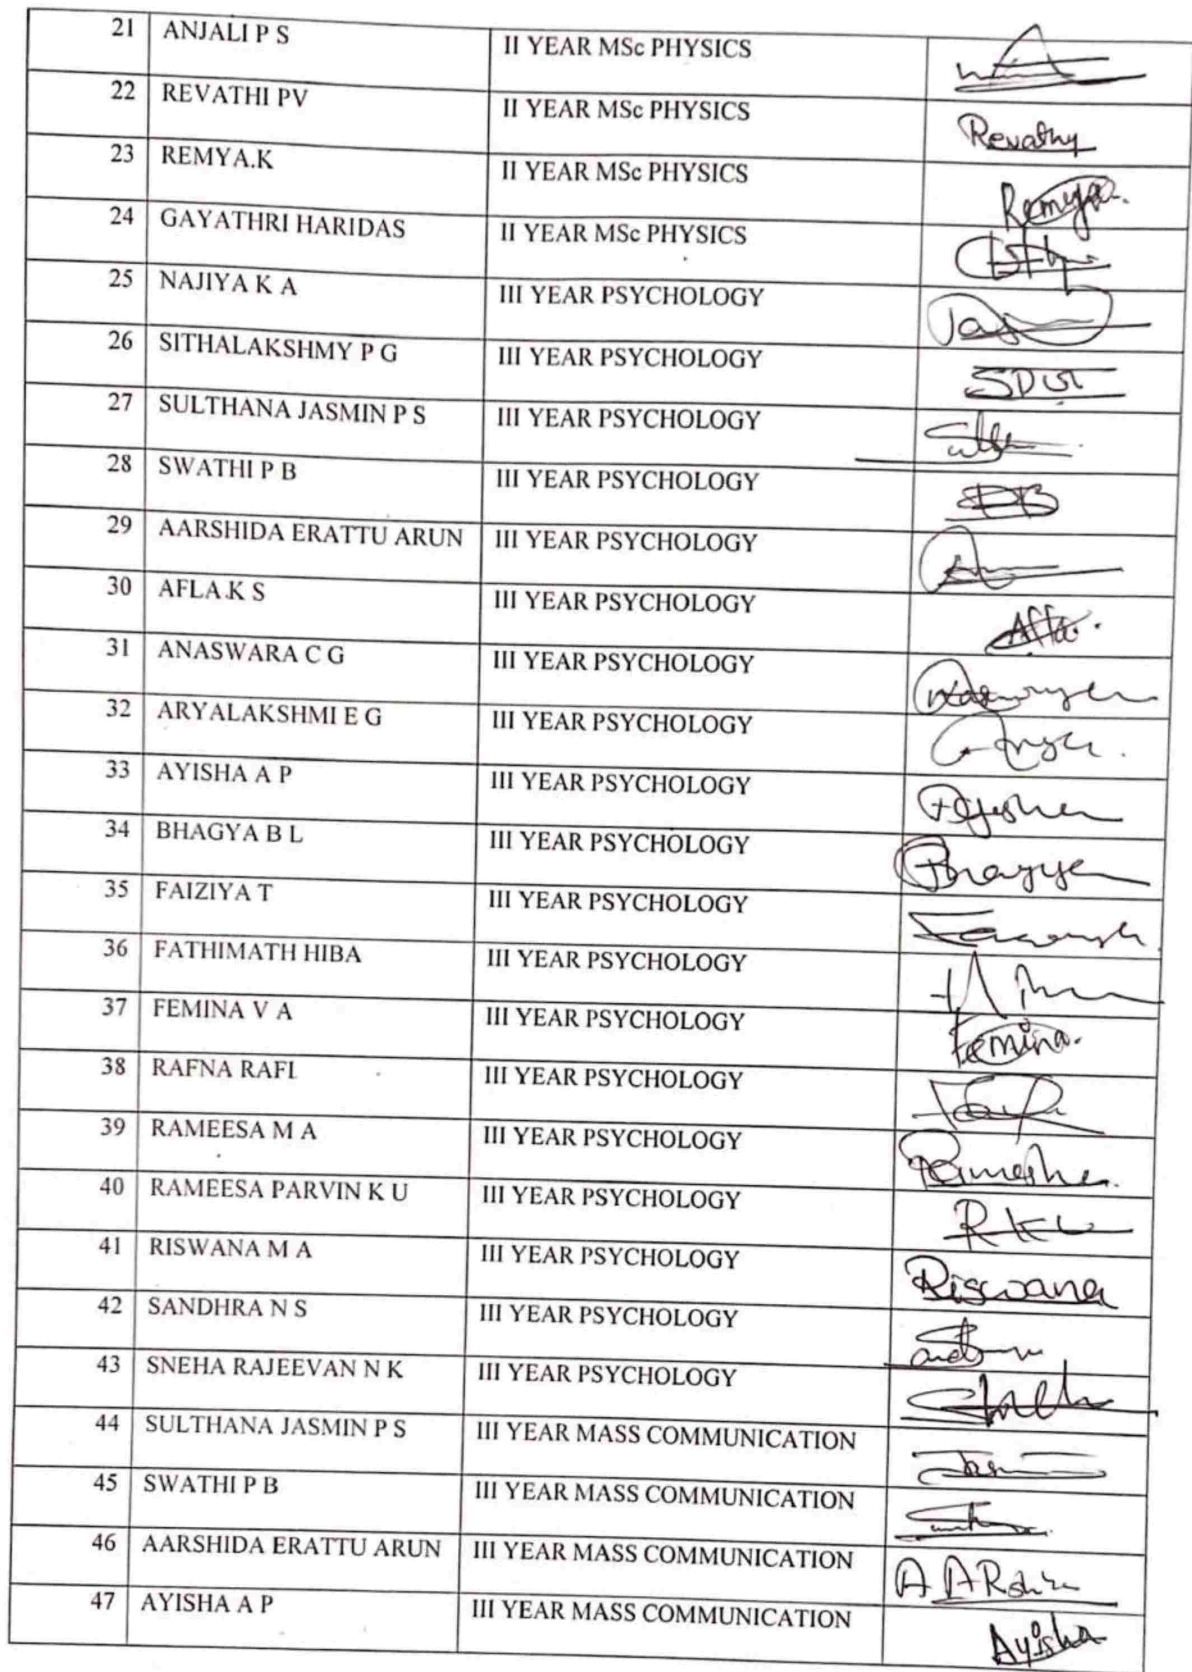 21 ANJALI P S II YEAR MSc PHYSICS
22 REVATHI PV II YEAR MSc PHYSICS Revathy
23 REMYA.K II YEAR MSc PHYSICS Remya.
24 GAYATHRI HARIDAS II YEAR MSc PHYSICS
25 NAJIYA K A III YEAR PSYCHOLOGY
26 SITHALAKSHMY P G III YEAR PSYCHOLOGY
27 SULTHANA JASMIN P S III YEAR PSYCHOLOGY
28 SWATHI P B III YEAR PSYCHOLOGY
29 AARSHIDA ERATTU ARUN III YEAR PSYCHOLOGY
30 AFLA.K S III YEAR PSYCHOLOGY
31 ANASWARA C G III YEAR PSYCHOLOGY
32 ARYALAKSHMI E G III YEAR PSYCHOLOGY
33 AYISHA A P III YEAR PSYCHOLOGY
34 BHAGYA B L III YEAR PSYCHOLOGY
35 FAIZIYA T III YEAR PSYCHOLOGY
36 FATHIMATH HIBA III YEAR PSYCHOLOGY
37 FEMINA V A III YEAR PSYCHOLOGY Femina.
38 RAFNA RAFI III YEAR PSYCHOLOGY
39 RAMEESA M A III YEAR PSYCHOLOGY
40 RAMEESA PARVIN K U III YEAR PSYCHOLOGY
41 RISWANA M A III YEAR PSYCHOLOGY Riswana
42 SANDHRA N S III YEAR PSYCHOLOGY
43 SNEHA RAJEEVAN N K III YEAR PSYCHOLOGY
44 SULTHANA JASMIN P S III YEAR MASS COMMUNICATION
45 SWATHI P B III YEAR MASS COMMUNICATION
46 AARSHIDA ERATTU ARUN III YEAR MASS COMMUNICATION
47 AYISHA A P III YEAR MASS COMMUNICATION Ayisha